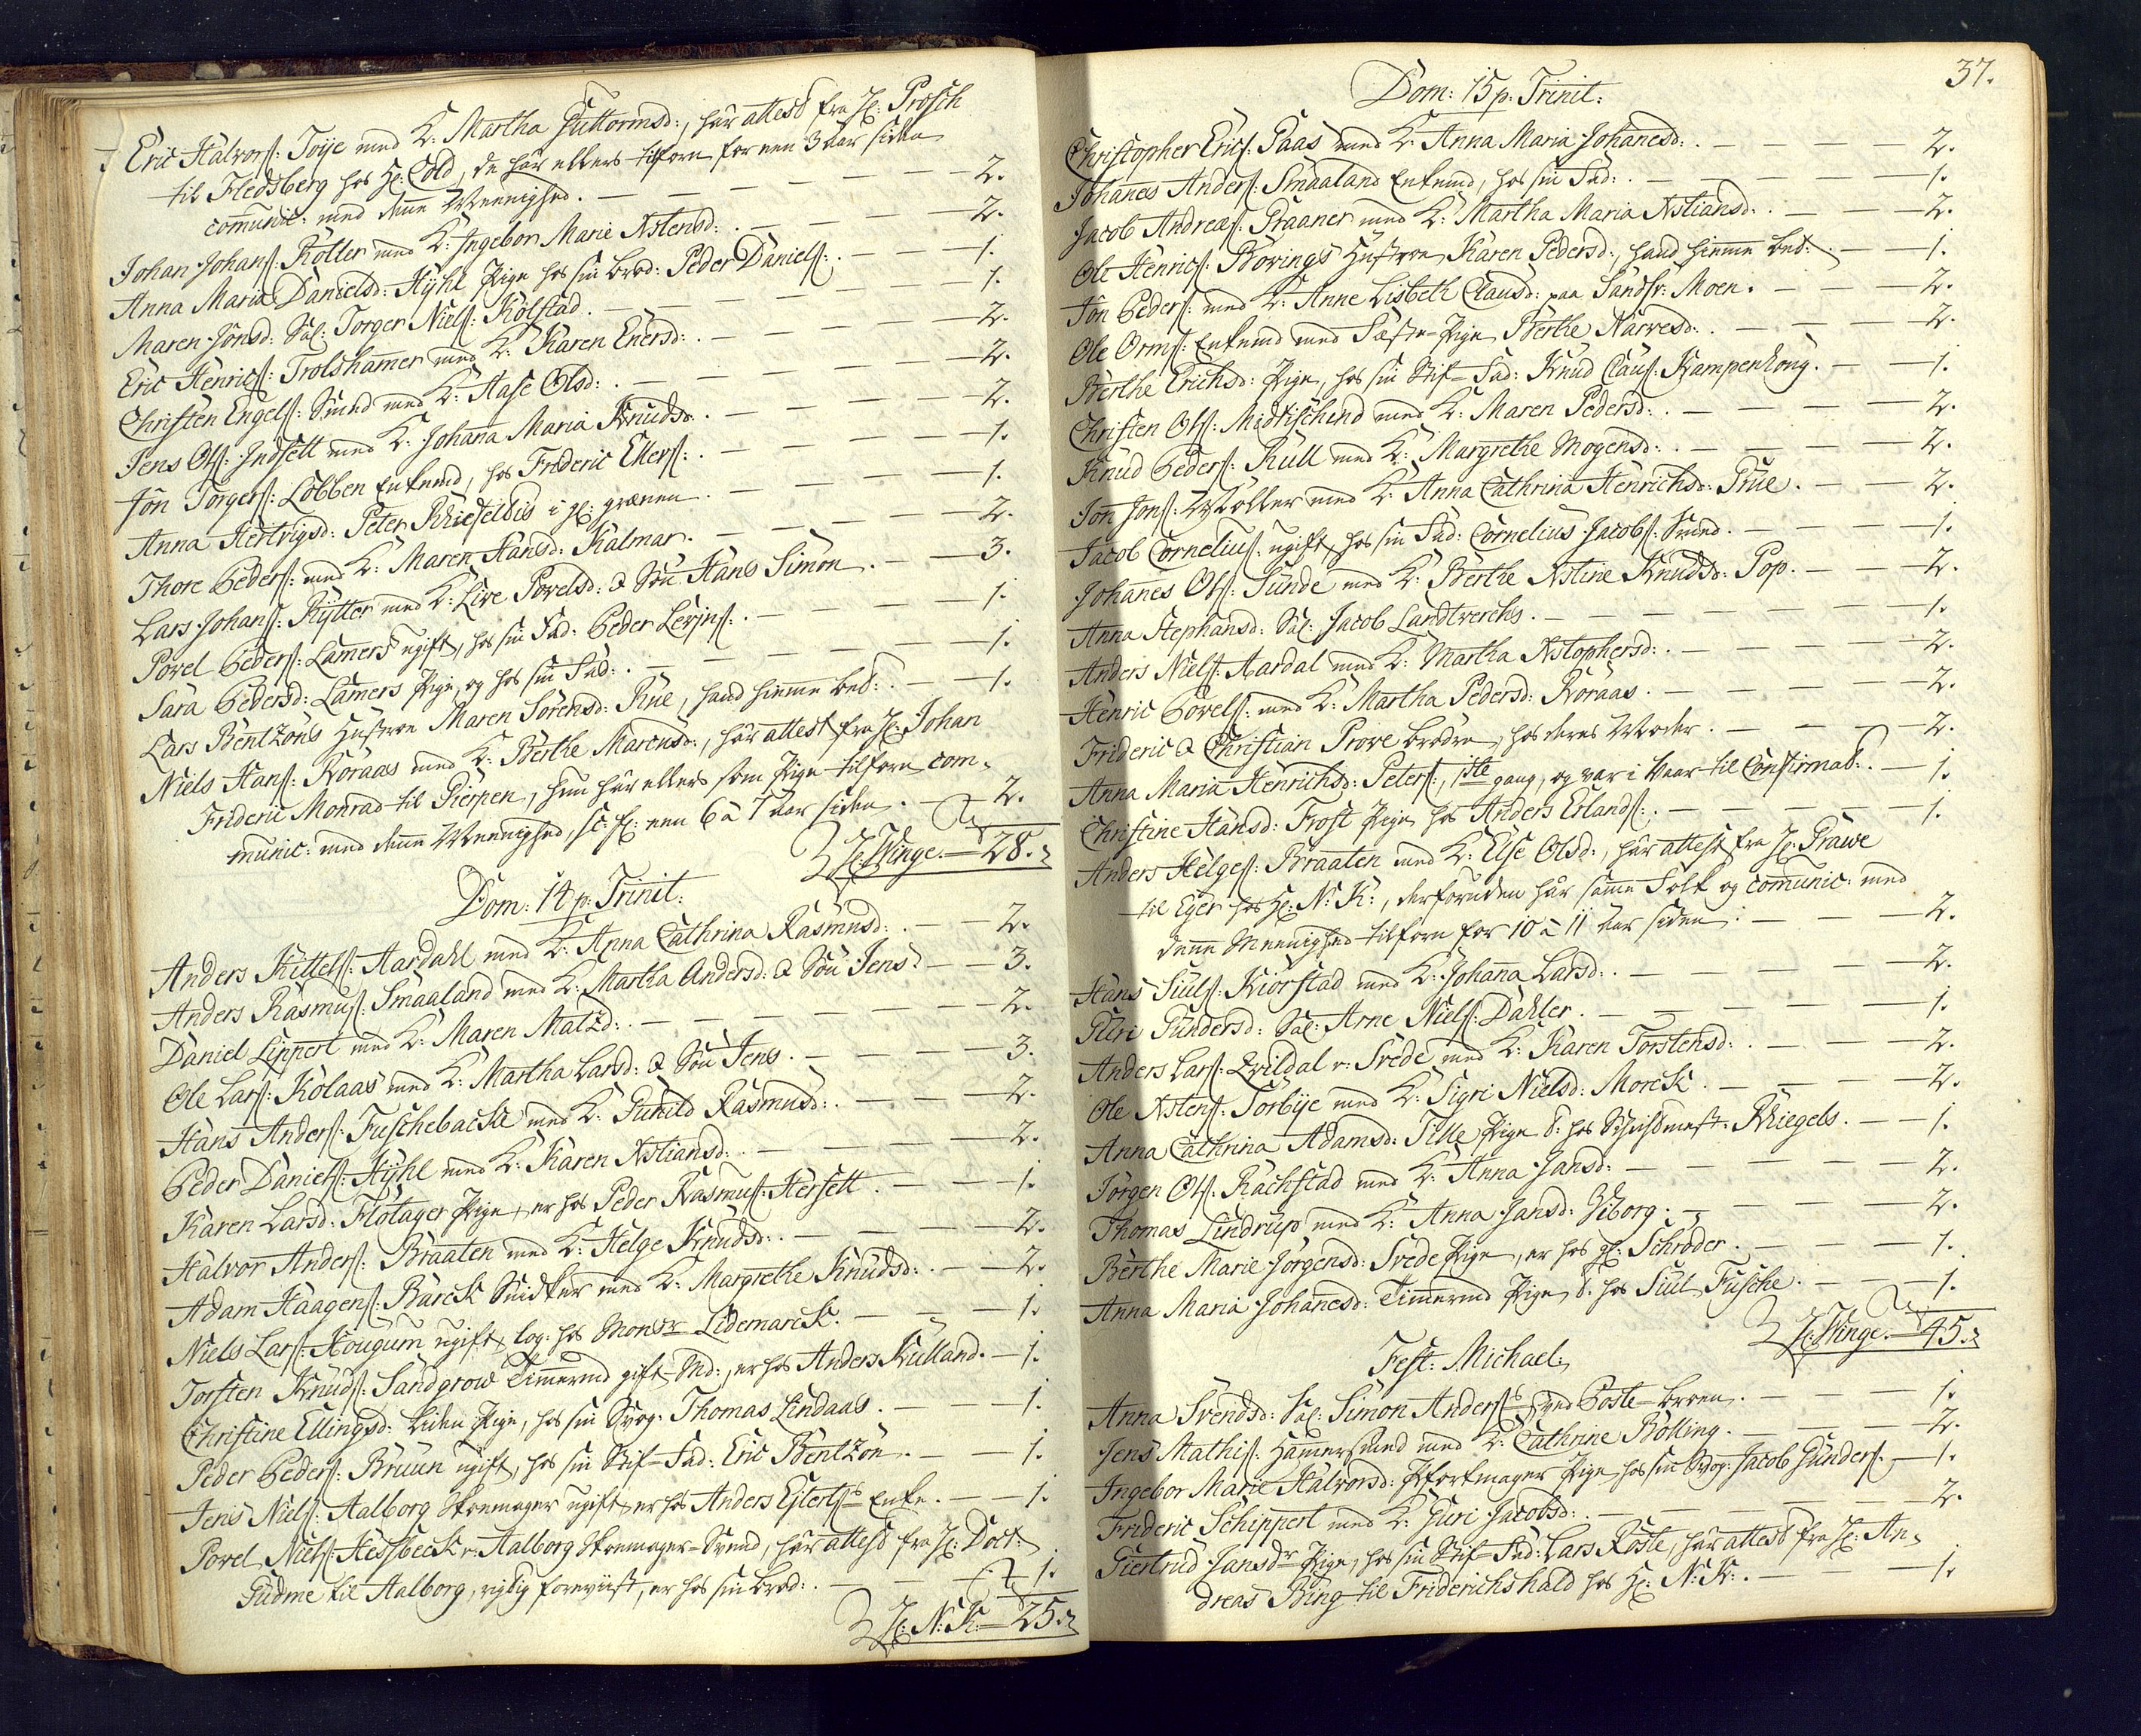 Eric Halvorſ: Toÿe med K: Martha Guttormsd:, har attest fra Hr: Prosch
til Fledsberg hos Hr: Cold, de har ellers tilforn for nen 3 Aar siden
com̄unic: med denne Meenighed. — 2.
Johan Johanſ: Koller med K: Ingebor Marie Xstensd: — 2.
Anna Maria Danielsd: Hÿhl Pige hos sin brod: Peder Danielſ: — 1.
Maren Jonsd: Sal: Torger Nielſ: Kolstad. — 1.
Eric Henricſ: Trolshamer med K: Karen Enersd: — 2.
Christen Engelſ: Smed med K: Aase Olsd: — 2.
Jens Olſ: Indsett med K: Johana Maria Knudsd: — 2.
Jon Torgerſ: Lobben Enkemd, hos Frideric Ellerſ: — 1.
Anna Hertvigsd: Peter Kriefeldts i gl: grænen — 1.
Thore Pederſ: med K: Maren Hansd: Kalmar. — 2.
Lars Johanſ: Rÿtter med K: Live Povelsd: & Sön Hans Simon — 3.
Povel Pederſ: Lamers ugift, hos sin Fad: Peder Levjnſ: — 1.
Sara Pedersd: Lamers Pige, og hos sin Fad: — 1.
Lars Bentzons Hustroe Maren Sörensd: Rue, hand hiemme bed: — 1.
Niels Hanſ: Koraas med K: Berthe Marensd:, har attest fra Hr: Johan
Frideric Monrad til Gierpen, hun har ellers som Pige tilforn com-
munic: med denne Meenighed, nen 6 à 7 Aar siden. — 2.
Hr: Winge. — 28.
Dom: 14 p: Trinit:
Anders Kittelſ: Aardahl med K: Anna Cathrina Rasmusd: — 2.
Anders Rasmuſ: Smaaland med K: Martha Andersd: & Sön Jens — 3.
Daniel Lippert med K: Maren Matzd: — 2.
Ole Larſ: Kolaas med K: Martha Larsd: & Sön Jens. — 3.
Hans Anderſ: Fuschebacke med K: Gunild Rasmusd: — 2.
Peder Danielſ: Hÿhl med K: Karen Xstiansd: — 2.
Karen Larsd: Flotager Pige, er hos Peder Rasmuſ: Hersett. — 1.
Halvor Anderſ: Braaten med K: Helge Knudsd: — 2.
Adam Haagenſ: Barck Snidker med K: Margrethe Knudsd: — 2.
Niels Larſ: Hougum ugift log: hos Monsr Lidemarck. — 1.
Torsten Knudſ: Sandgrow Timermd gift Md:, er hos Anders Kulland. — 1.
Christine Ellingsd: liden Pige, hos sin Svog: Thomas Lindaas. — 1.
Peder Pederſ: Bruun ugift, hos sin Stif-Fad: Eric Bentzon. — 1.
Jens Nielſ: Aalborg Skoemager ugift er hos Anders Ejlertſs Enke. — 1.
Povel Nielſ: Hessbeck v. Aalborg Skoemager-Svend, har attest fra Hr: Doct:
Gudme til Aalborg, rigtig foreviist, er hos sin brod: — 1.
Hr: N: K: — 25.
37.
Dom: 15 p: Trinit:
Christopher Ericſ: Paas med K: Anna Maria Johanesd: — 2.
Johanes Anderſ: Smaaland Enkemd, hos sin Fad: — 1.
Jacob Andreaſ: Graaner med K: Martha Maria Xstiansd: — 2.
Ole Henricſ: Bovings Hustroe Karen Pedersd:, hand hiemme bed: — 1.
Jon Pederſ: med K: Anne Lisbeth Clausd: paa Sandsv: Moen. — 2.
Ole Ormſ: Enkemd med Fæste-Pige Berthe Narvesd: — 2.
Berthe Erichsd: Pige, hos sin Stif-Fad: Knud Clauſ: Kampenhoug. — 1.
Christen Olſ: Medtischend med K: Maren Pedersd: — 2.
Knud Pederſ: Kull med K: Margrethe Mogensd: — 2.
Jon Jonſ: Möller med K: Anna Cathrina Henrichsd: Prue. — 2.
Jacob Corneliuſ: ugift, hos sin Fad: Cornelius Jacobſ: Smed. — 1.
Johanes Olſ: Sunde med K: Berthe Xstine Knudsd: Pop. — 2.
Anna Stephansd: Sal: Jacob Landtverchs. — 1.
Anders Nielſ: Aardal med K: Martha Xstophersd: — 2.
Henric Povelſ: med K: Martha Pedersd: Koraas. — 2.
Frideric & Christian Prove brödre, hos deres Moder. — 2.
Anna Maria Henrichsd: Peterſ:, 1ste gang, og var i Vaar til Confirmat: — 1.
Christine Hansd: Frost Pige hos Anders Erlandſ: — 1.
Anders Helgeſ: Braaten med K: Else Olsd:, har attest fra Hr: Grawe
til Eger hos Hr: N: K:, desforuden har same Folk og com̄unic: med
denne Meenighed tilforn for 10 à 11 Aar siden: — 2.
Hans Siulſ: Kiorstad med K: Johana Larsd: — 2.
Guri Gundersd: Sal: Arne Nielſ: Dahler. — 1.
Anders Larſ: Qvildal v: Svede med K: Karen Torstensd: — 2.
Ole Xstenſ: Torbÿe med K: Sigri Nielsd: Morck. — 2.
Anna Cathrina Adamsd: Tille Pige d: hos Kriegels. — 1.
Jörgen Olſ: Rachstad med K: Anna Jansd: — 2.
Thomas Lindrup med K: Anna Jansd: Giborg. — 2.
Berthe Marie Jörgensd: Svede Pige, er hos gl: Schröder. — 1.
Anna Maria Johanesd: Timermd Pige, d. hos Siul Fusche. — 1.
Hr: Winge. — 45.
Fest: Michael:
Anna Svendsd: Sal: Simon Anderſs ved Poste-broen. — 1.
Jens Mathiſ: Hammersmed med K: Cathrine Bölling. — 2.
Ingebor Marie Halvorsd: Pige hos sin Svog: Jacob Gunderſ: — 1.
Frideric Schippert med K: Guri Jacobsd: — 2.
Giertrud Jansdr Pige, hos sin Stif-Fad: Lars Roste, har attest fra Hr: An-
dreas Bing til Friderichshald hos Hr: N: K: — 1.